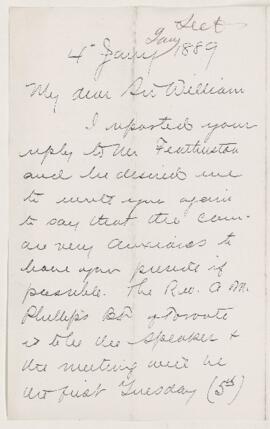 4" Jany 1889
My dear Sir William
I reported your
reply to Mr Featherston
and he desired me
to write you again
to say that the Com.
are very anxious to
have you present if
possible. The Rev. A. M.
Phillips BD of Toronto
is to be the speaker &
the meeting will be
the first Tuesday (5th)